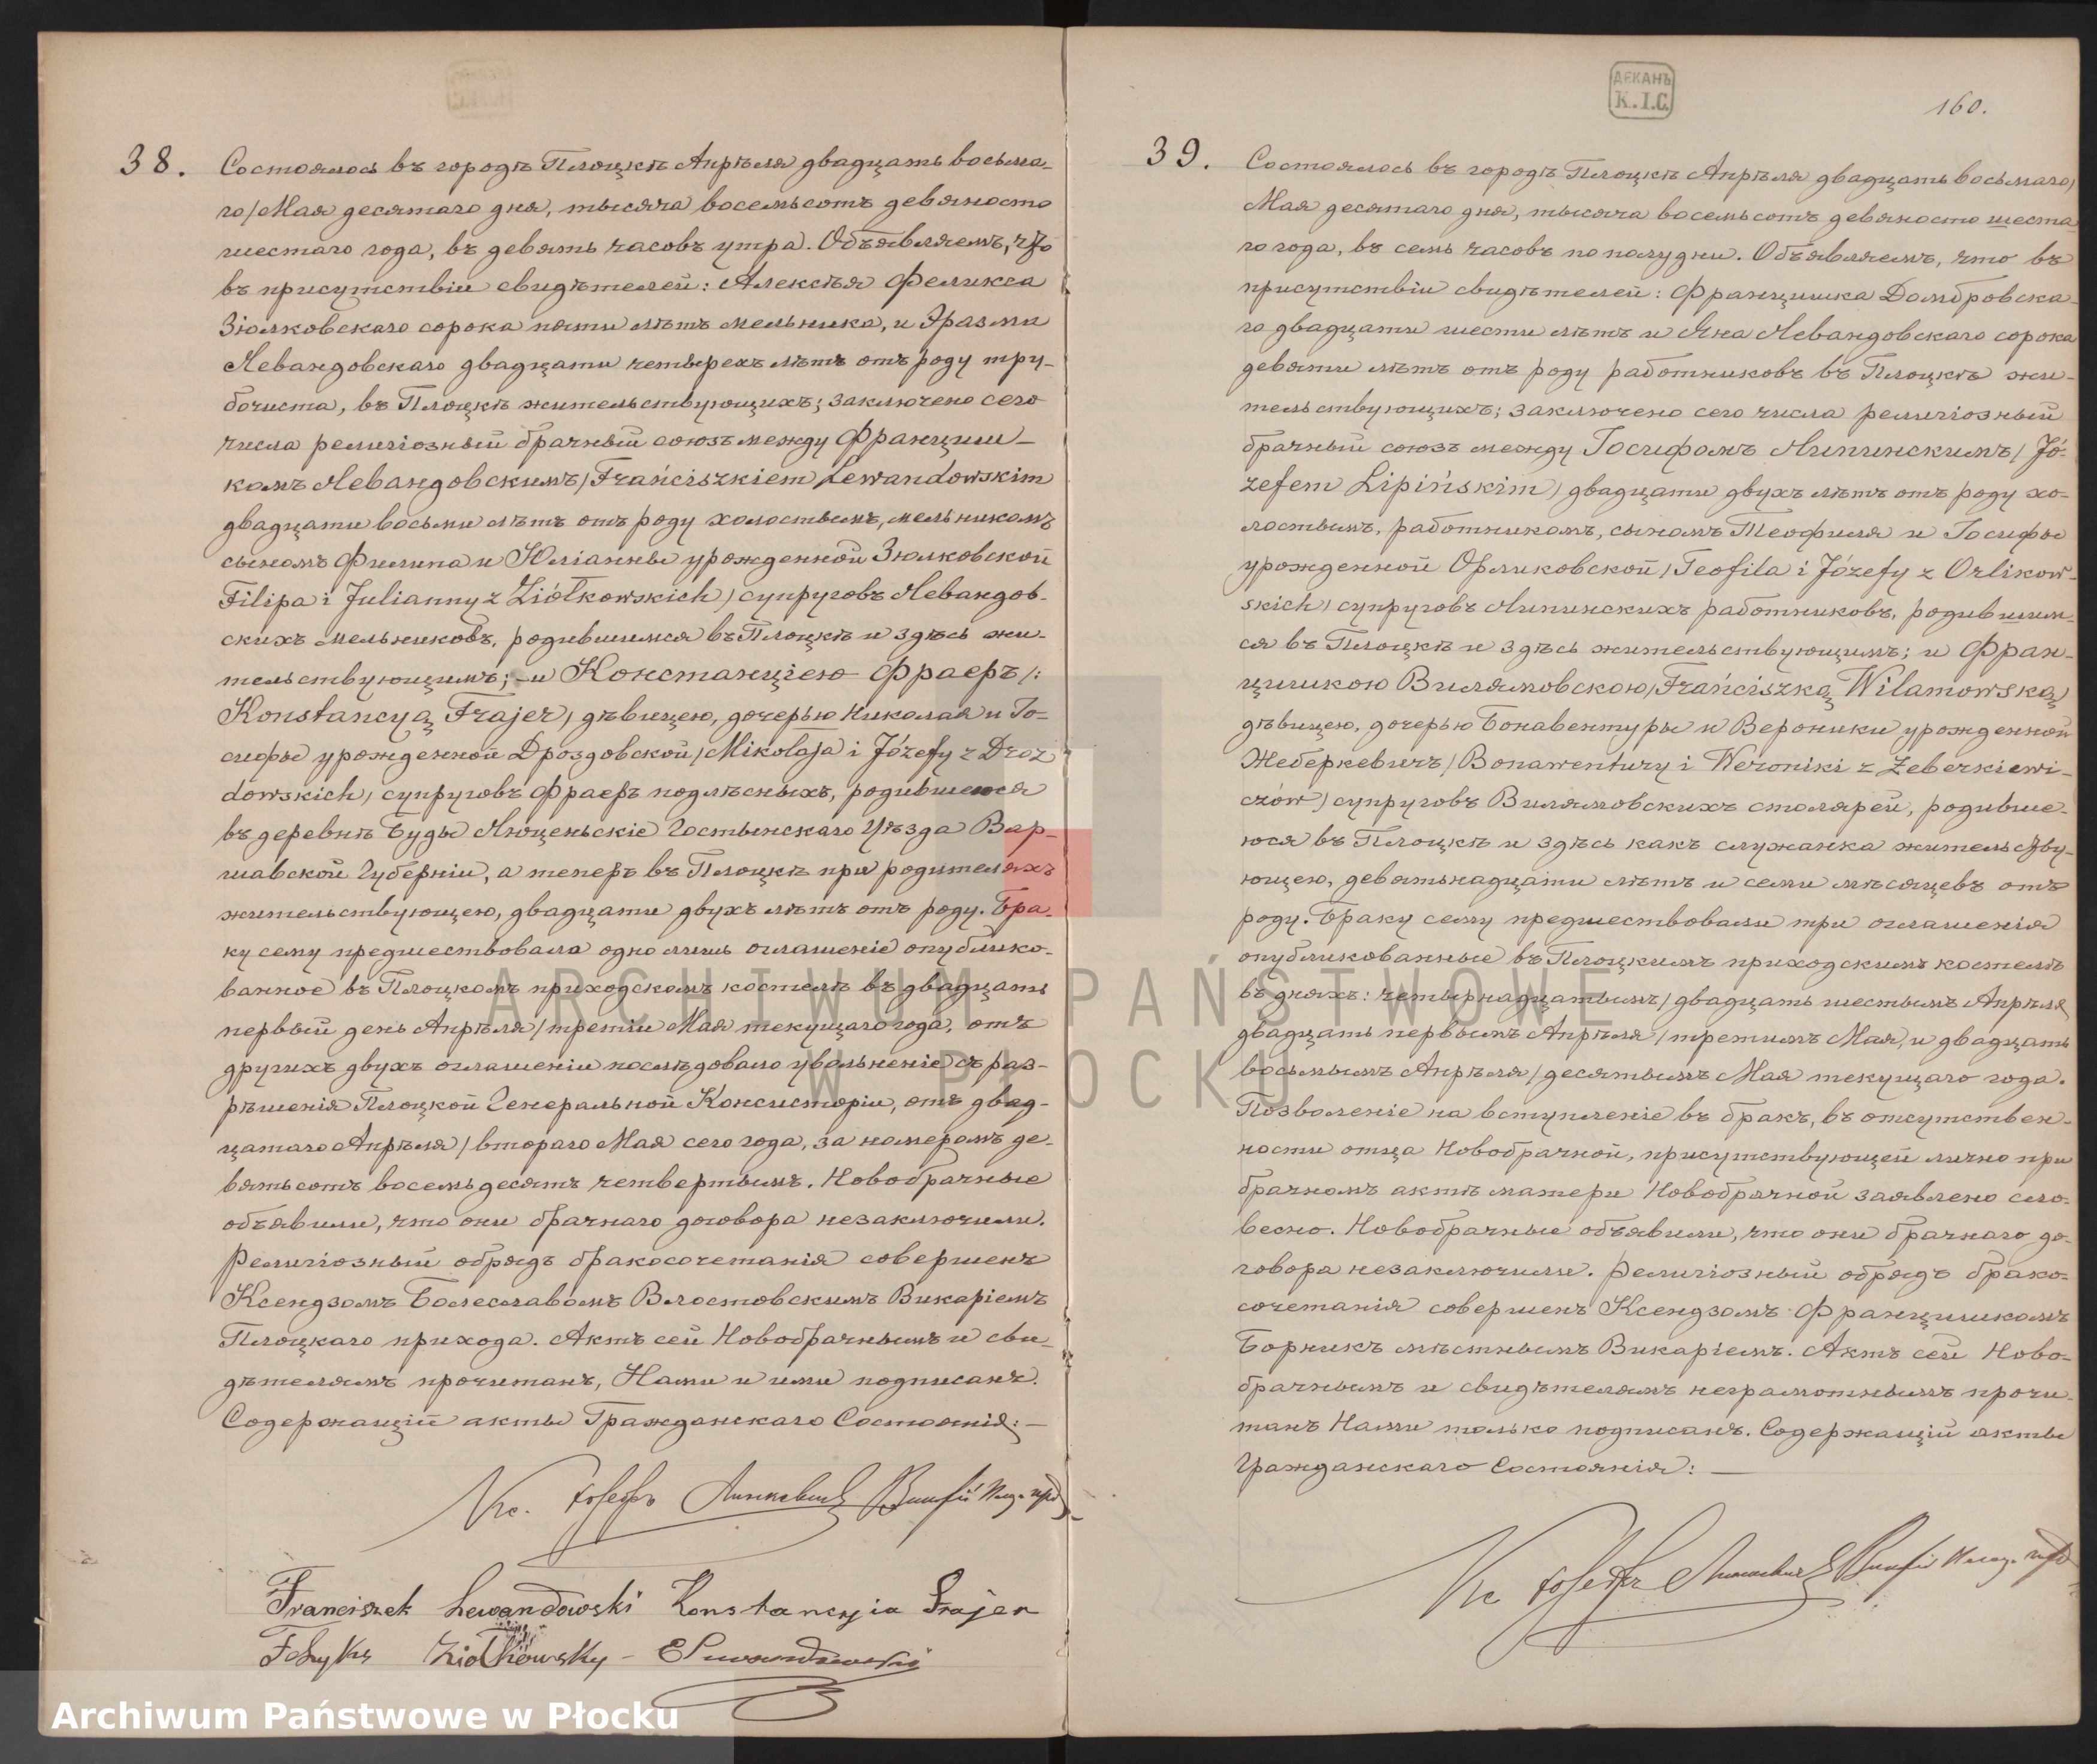 38.
Состоялось въ городѣ Плоцкѣ Апрѣля двадцать восьма-
го/Мая десятаго дня, тысяча восемьсотъ девяносто
шестаго года, въ девять часовъ утра. Объявляемъ, что
въ присутствіи свидѣтелей: Алексѣя Феликса
Зіолковскаго сорока пяти лѣтъ мельника, и Эразма
Левандовскаго двадцати четырехъ лѣтъ отъ роду тру-
бочиста, въ Плоцкѣ жительствующихъ; заключено сего
числа религіозный брачный союзъ между Францишь-
комъ Левандовскимъ/Frańciszkiem Lewandowskim
двадцати восьми лѣтъ отъ роду холостымъ, мельникомъ
сыномъ Филипа и Юліанны урожденной Зюлковской
Filipa i Julianny z Ziółkowskich) супруговъ Левандов-
скихъ мельниковъ, родившимся въ Плоцкѣ и здѣсь жи-
тельствующимъ; - и Констанціею Фраеръ /:
Konstancyą Frajer) дѣвицею, дочерью Николая и Іо-
сифы урожденной Дроздовской/Mikołaja i Józefy z Droz
dowskich) супруговъ Фраеръ подлѣсныхъ, родившеюся
въ деревнѣ Буды Люценьскіе Гостынскаго Уѣзда Вар-
шавской Губерніи, а теперь въ Плоцкѣ при родителяхъ
жительствующею, двадцати двухъ лѣтъ отъ роду. Бра-
ку сему предшествовала одно лишь оглашеніе опублико-
ванное въ Плоцкомъ приходскомъ костелѣ въ двадцать
первый день Апрѣля/третій Мая текущаго года, отъ
другихъ двухъ оглашеніи послѣдовало увольненіе съ раз-
рѣшенія Плоцкой Генеральной Консисторіи, отъ двад-
цатаго Апрѣля/втораго Мая сего года, за номеромъ де-
вятьсотъ восемьдесятъ четвертымъ. Новобрачные
объявили, что они брачнаго договора незаключили.
Религіозный обрядъ бракосочетанія совершенъ
Ксендзомъ Болеславомъ Влостовскимъ Викаріемъ
Плоцкаго прихода. Актъ сей Новобрачнымъ и сви-
дѣтелямъ прочитанъ, Нами и ими подписанъ.
Содержащій акты Гражданскаго Состоянія: —
Кс.
Franciszek Lewandowski Konstancyia Frajer
Feliyks Ziołkowsky - ELewandowski
ДЕКАНЪ
К. I. С.
160.
39.
Состоялось въ городѣ Плоцкѣ Апрѣля двадцать восьмаго/
Мая десятаго дня, тысяча восемьсотъ девяносто шеста
го года, въ семь часовъ по полудни. Объявляемъ, что въ
присутствіи свидѣтелей: Францишка Домбровска-
го двадцати шести лѣтъ и Яна Левандовскаго сорока
девяти лѣтъ отъ роду работниковъ въ Плоцкѣ жи-
тельствующихъ; заключено сего числа религіозный
брачный союзъ между Іосифомъ Липинскимъ/Jó-
zefem Lipińskim) двадцати двухъ лѣтъ отъ роду хо-
лостымъ, работникомъ, сыномъ Теофиля и Іосифы
урожденной Орликовской/Teofila i Józefy z Orlikow-
skich) супруговъ Липинскихъ работниковъ, родившим-
ся въ Плоцкѣ и здѣсь жительствующимъ; и Фран-
цишкою Вилямовскою/Frańciszką Wilamowską)
дѣвицею, дочерью Бонавентуры и Вероники урожденной
Жеберкевичъ/Bonawentury i Weroniki z Żeberkiewi-
czów) супруговъ Вилямовскихъ столярей, родивше-
юся въ Плоцкѣ и здѣсь какъ служанка жительству-
ющею, девятьнадцати лѣтъ и семи мѣсяцевъ отъ
роду. Браку сему предшествовали три оглашенія
опубликованные въ Плоцкимъ приходскимъ костелѣ
въ дняхъ: четырнадцатымъ/двадцать шестымъ Апрѣля,
двадцать первымъ Апрѣля/третимъ Мая, и двадцать
восьмымъ Апрѣля/десятымъ Мая текущаго года.
Позволеніе на вступленіе въ бракъ, въ отсутствен-
ности отца Новобрачной, присутствующей лично при
брачномъ актѣ матери Новобрачной заявлено сло-
весно. Новобрачные объявили, что они брачнаго до-
говора незаключили. Религіозный обрядъ брако-
сочетанія совершенъ Ксендзомъ Францишкомъ
Борникъ мѣстнымъ Викаріемъ. Актъ сей Ново-
брачнымъ и свидѣтелямъ неграмотнымъ прочи-
танъ Нами только подписанъ. Содержащій акты
Гражданскаго Состоянія: —
Кс
ARCHIWUM PAŃSTWOWE
W PŁOCKU
Archiwum Państwowe w Płocku